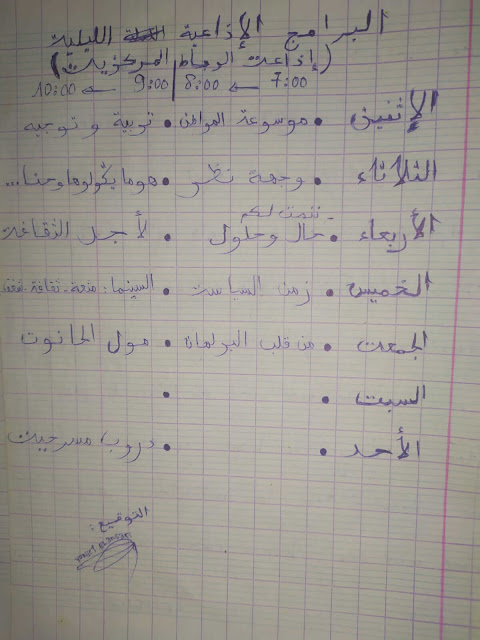 البرامج الإذاعية الليلية
(إذاعة الرباط المركزية)
7:00 ← 8:00 | 9:00 ← 10:00
الإثنين • موسوعة المواطن • تربية و توجيه
الثلاثاء • وجهة نظر • هوما يݣولو وحنا...
نتمنى لكم
الأربعاء • حال وحلول • لأجل الثقافة
الخميس • زمن السياسة • السينما: متعة - ثقافة -
الجمعة • من قلب البرلمان • مول الحانوت
السبت • •
الأحد • • دروب مسرحية
التوقيع: